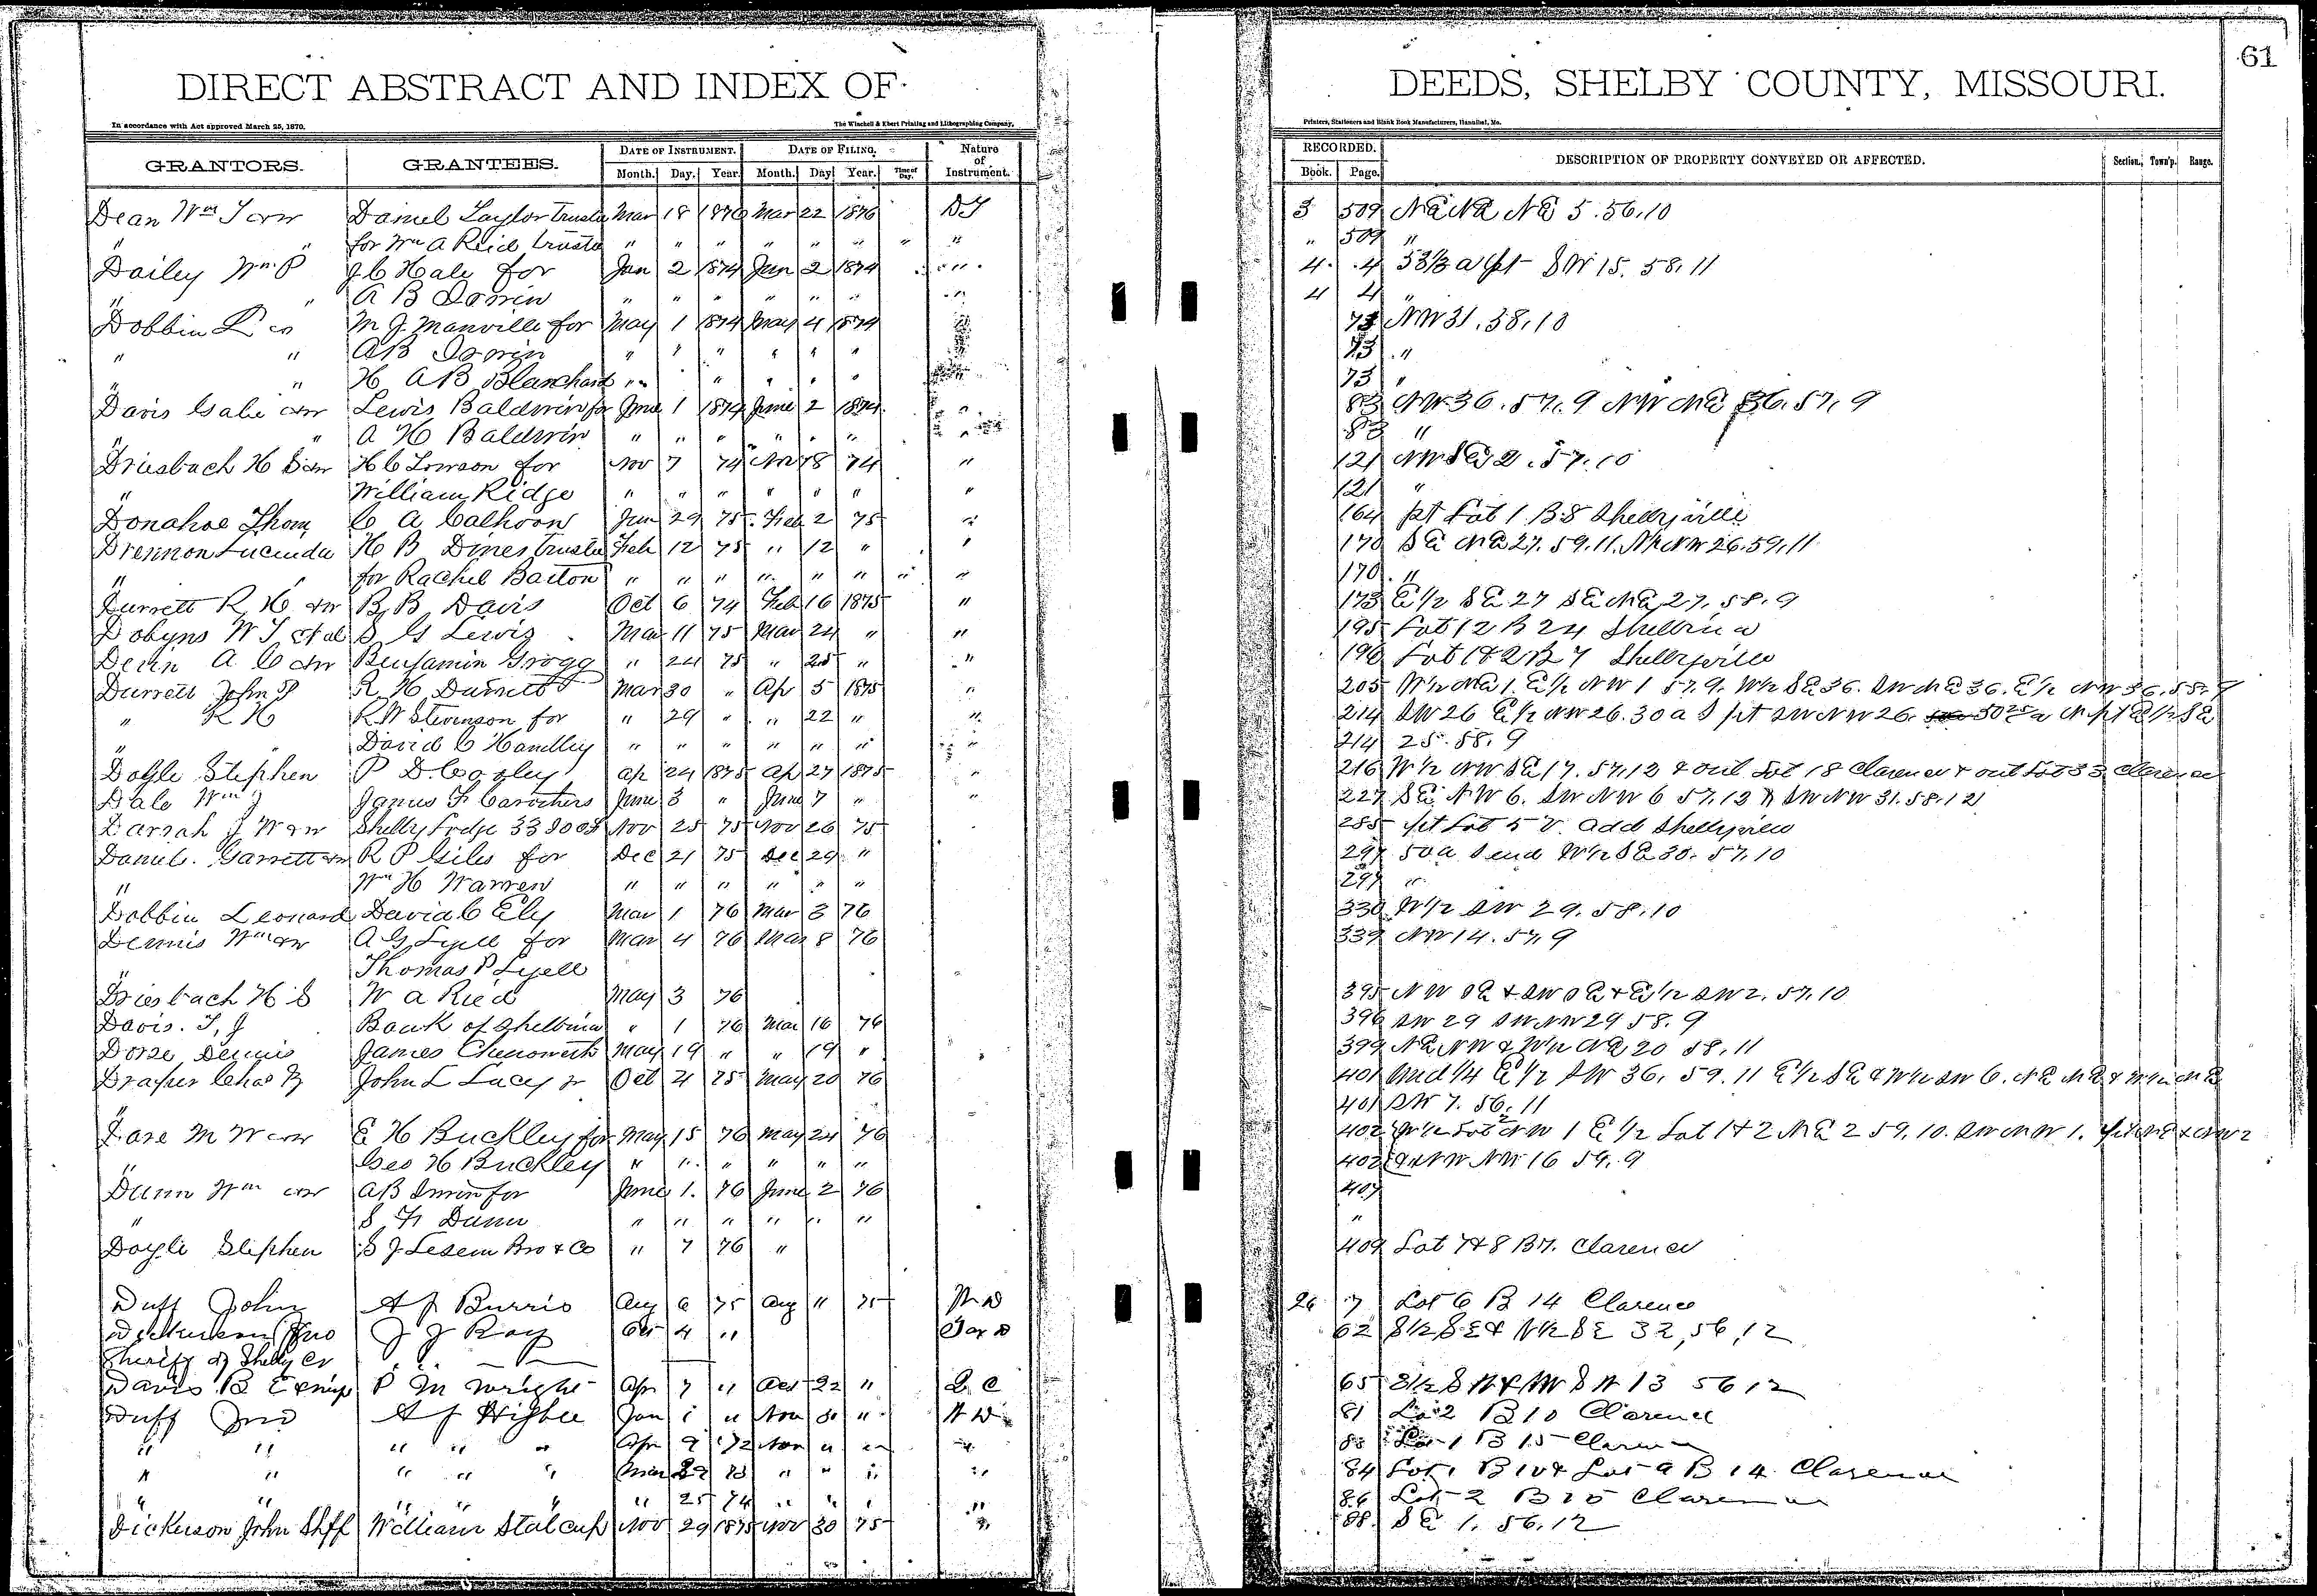 61
DIRECT ABSTRACT AND INDEX OF DEEDS, SHELBY COUNTY, MISSOURI.
In accordance with Act approved March 25, 1870. The Winchell & Ebert Printing and Lithographing Company, Printers, Stationers and Blank Book Manufacturers, Hannibal, Mo.
GRANTORS. GRANTEES. DATE OF INSTRUMENT. DATE OF FILING. Nature of Instrument. RECORDED. DESCRIPTION OF PROPERTY CONVEYED OR AFFECTED. Section. Town'p. Range.
Month. Day. Year. Month. Day Year. Time of Day. Book. Page.
Dean Wm J & w Daniel Taylor Trustee Mar 18 1876 Mar 22 1876 DT 3 509 NE NE NE 5.56.10
" " for Wm A Reid Trustee " " " " " " " " " 509 "
Dailey Wm P J C Hale for Jan 2 1874 Jan 2 1874 " 4 4 53 1/3 a pt SW 15. 58. 11
" " A B Irwin " " " " " " " 4 4 "
Dobbin L M J Manville for May 1 1874 May 4 1874 73 NW 31. 58. 10
" " A B Irwin " " " " " " 73 "
" " H A B Blanchard " " " " " 73 "
Davis Gabe & w Lewis Baldwin for June 1 1874 June 2 1874 " 83 NW 36. 57. 9 NW NE 36. 57. 9
" " A H Baldwin " " " " " " " 83 "
Driesbach H S & w H C Lowson for Nov 7 74 Nov 18 74 " 121 NW SE 2. 57. 10
" William Ridge " " " " " " " 121 "
Donahoe Thom C A Calhoon Jan 29 75 Feb 2 75 " 164 pt Lot 1 B 8 Shelbyville
Drennon Lucinda H B Dines Trustee Feb 12 75 " 12 " " 170 SE NE 27. 59. 11. NW NW 26. 59. 11
" " for Rachel Barton " " " " " " " " 170 "
Durrett R H & w B B Davis Oct 6 74 Feb 16 1875 " 173 E 1/2 SE 27 SE NE 27. 58. 9
Dobyns W T et al S G Lewis Mar 11 75 Mar 24 " " 195 Lot 12 B 24 Shelbina
Dean A C & w Benjamin Grogg " 24 75 " 25 " " 196 Lot 1 & 2 B 7 Shelbyville
Durrett John P R H Durrett Mar 30 " Ap 5 1875 " 205 W 1/2 NE 1. E 1/2 NW 1 57. 9. W 1/2 SE 36. SW NE 36. E 1/2 NW 36. 58. 9
" R H R W Stevenson for " 29 " " 22 " " 214 SW 26 E 1/2 NW 26. 30 a S pt SW NW 26. 50 25 a N pt E 1/2 SE
" David C Handley " " " " " " " 214 25. 58. 9
Doyle Stephen P D Cooley Ap 24 1875 Ap 27 1875 " 216 W 1/2 NW SE 17. 57. 12 & out Lot 18 Clarence & out Lot 33 Clarence
Dale Wm J James F Carothers June 3 " June 7 " " 227 SE NW 6. SW NW 6 57. 12 & SW NW 31. 58. 12
Darrah J W & w Shelby Lodge 33 IOOF Nov 25 75 Nov 26 75 285 pt Lot 5 V. Add Shelbyville
Daniel Garrett & w R P Giles for Dec 21 75 Dec 29 " 297 50 a S end W 1/2 SE 30. 57. 10
" Wm H Warren " " " " " " 297 "
Dobbin Leonard David C Ely Mar 1 76 Mar 3 76 330 W 1/2 SW 29. 58. 10
Dennis Wm & w A G Lyell for Mar 4 76 Mar 8 76 339 NW 14. 57. 9
" Thomas P Lyell
Driesbach H S W A Ried May 3 76 395 NW SE & SW SE & E 1/2 SW 2. 57. 10
Davis. T. J Bank of Shelbina " 1 76 Mar 16 76 396 SW 29 SW NW 29 58. 9
Dorse Dennis James Chenoweth May 19 " " 19 " 399 NE NW & W 1/2 NE 20 58. 11
Draper Chas B John L Lacy Jr Oct 4 75 May 20 76 401 Und 1/4 E 1/2 SW 36. 59. 11 E 1/2 SE & W 1/2 SW 6. NE NE & W 1/2 NE
" 401 SW 7. 56. 11
Dare M W & w E H Buckley for May 15 76 May 24 76 402 W 1/2 Lot 2 NW 1 E 1/2 Lot 1 & 2 NE 2 59. 10. SW NW 1.
Geo H Buckley " " " " " " 402 NW NW 16 59. 9
Dunn Wm & w A B Irwin for June 1. 76 June 2 76 407
" S F Dunn " " " " " " "
Doyle Stephen S J Lesem Bro & Co " 7 76 " 409 Lot 7 & 8 B 7. Clarence
Duff John A J Burris Aug 6 75 Aug 11 75 W D 26 7 Lot 6 B 14 Clarence
Dickerson Jno J J Ray Oct 4 " Tax D 62 S 1/2 SE & N 1/2 SE 32, 56, 12
Sheriff of Shelby Co
Davis B E & wife P M Wright Apr 7 " Oct 22 " Q C 65 E 1/2 SW & NW SW 13 56 12
Duff Jno A J Higbee Jan 1 " Nov 30 " W D 81 Lot 2 B 10 Clarence
" " " " " Apr 9 '72 Nov " " " Lot 1 B 15 Clarence
" " " " " Mar 73 " " " " 84 Lot 1 B 10 & Lot B 14 Clarence
" " " " " " 25 74 " " " " 86 Lot 2 B 15 Clarence
Dickerson John Shff William Stalcup Nov 29 1875 Nov 30 75 " 88 SE 1. 56. 12